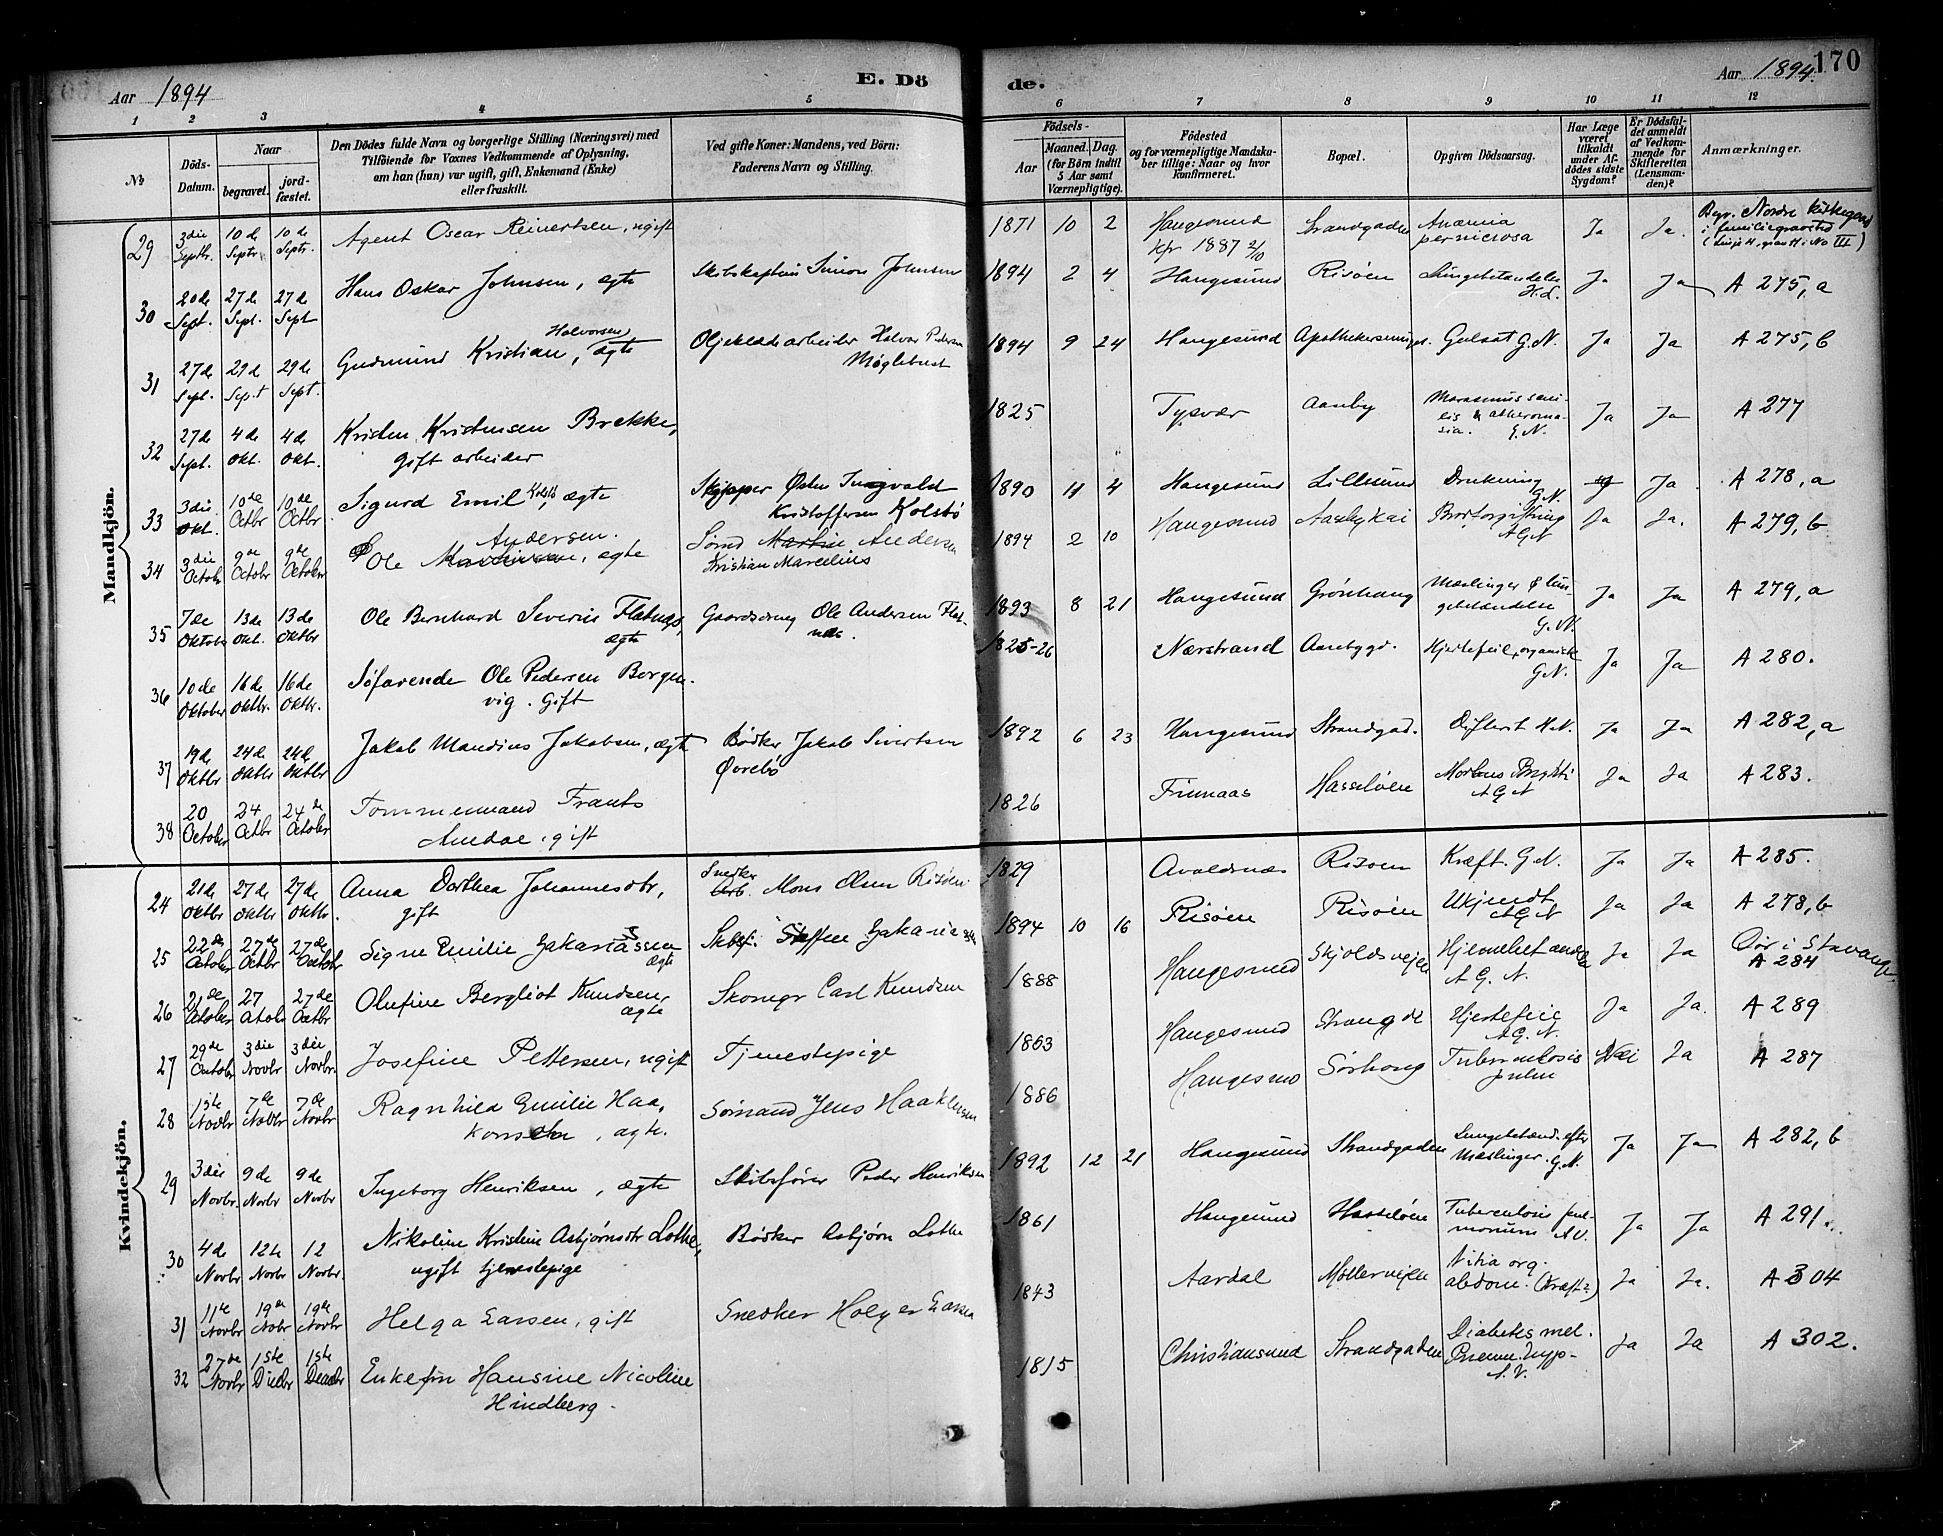 Aar 1894
E. Dö
de.
Aar 1894. 170
1 2 3 4 5 6 7 8 9 10 11 12
№
Döds-Datum.
Naar
begravet.
jord-fæstet.
Den Dödes fulde Navn og borgerlige Stilling (Næringsvei) med
Tilföiende for Voxnes Vedkommende af Oplysning,
om han (hun) var ugift, gift, Enkemand (Enke)
eller fraskilt.
Ved gifte Koner: Mandens, ved Börn:
Faderens Navn og Stilling.
Födsels-
Aar
Maaned. Dag.
(for Börn indtil
5 Aar samt
Værnepligtige).
Födested
og for værnepligtige Mandsku-
ber tillige: Naar og hvor
Konfirmeret.
Bopæl.
Opgiven Dödsaarsag.
Har Læge
været
tilkaldt
under Af-
dödes sidste
Sygdom?
Er Dödsful-
det anmeldt
af Vedkom-
mende for
Skifteretten
(Lensman-
den)?
Anmærkninger.
Mandkjön.
29 3die Septbr. 10de Septr. 10de Septr. Agent Oscar Reinertsen, ugift 1871 10 2 Haugesund kfr 1887 2/10 Strandgaden Anæmia perniciosa Ja Ja. Begr. Nordre Kirkegaard i familiegravsted
30 20de Sept. 27de Sept. 27de Sept Hans Oskar Johnsen, ægte Skibskaptein Simon Johnsen 1894 2 4 Haugesund Risöen Lungebetændelse H.L. Ja Ja A 275, a
31 27de Sept. 29de Sept 29de Sept. Gudmund Kristian Halvorsen, ægte Oljeklædearbeider Halvor Pedersen Møglebust 1894 9 24 Haugesund Gulsot G.N. Ja Ja A 275, b
32 27de Sept. 4de Okt. 4de Okt. Kristen Kristensen Brekke, gift arbeider 1825 Tysvær Aasby Marasmus senilis & atheromasia. G.N. Ja Ja A 277
33 3die Okt. 10de Octbr 10de Octbr Sigurd Emil Kolstö, ægte Skipper Østen Ingvald Kristoffersen Kolstö 1890 11 4 Haugesund Lillesund Drukning G.N. Ja A 278, a
34 3die Octobr 9de Octobr 9de Octobr Ole Andersen. ægte Sømd Andersen Kristian Marcelius 1894 2 10 Haugesund Aasbykai A G N Ja Ja. A 279, b
35 7de Oktobr 13de Okt. 13de Oktbr Ole Bernhard Severin Flatnes, ægte Gaardsdreng Ole Andersen Flatnes. 1893 8 21 Haugesund Grönhaug Mæslinger & lungebetændelse G.N. Ja Ja A 279, a
36 10de Oktober 16de Oktbr. 16de Oktbr. Søfarende Ole Pedersen Borgenvig. Gift 1825-26 Nærstrand Aasbygd. Hjertefeil, organisk G.N. Ja Ja A 280.
37 19de Oktbr 24de Oktbr 24de Oktbr Jakob Mandius Jakobsen, ægte Bødker Jakob Sivertsen Øvrebö 1892 6 23 Haugesund Strandgad. Difterit H.N. Ja Ja A 282, a
38 20 October 24 Octbr 24de Octobr Tømmermand Frants Amdal, gift 1826 Finnaas Hasselöen Morbus Brightii A G N Ja Ja A 283.
Kvindekjön.
24 21de Oktbr 27de Oktbr 27de Oktbr. Anna Dorthea Johannesdtr, gift Snedker Arb. Mons Olsen Risöen 1829 Avaldsnæs Risöen Kræft. G.N. Ja Ja A 285.
25 22de October 27de Octbr 27de Octobr Signe Emilie Zakariassen ægte Skbsf. Steffen Zakariassen 1894 10 16 Risöen Risöen Ukjendt A G N Ja Ja A 278, b
26 21de October 27 Octobr 27de Octbr Olufine Bergliot Knudsen, ægte Skomgr Carl Knudsen 1888 Haugesund Skjoldsvejen Hjernebetændelse A.G.N. Ja Ja Dør i Stavanger A 284
27 29de October 3die Novbr 3die Novbr. Josefine Pettersen, ugift Tjenestepige 1863 Haugesund Strangde Hjertefeil A.G.N. Ja Ja. A 289
28 1ste Novbr 7de Novbr 7de Novbr Ragnhild Emilie Haakonsen, ægte. Sømand Jens Haakonsen 1886 Haugesund Sørhaug Tuberculosis pulm Nei Ja A 287
29 3die Novbr. 9de Novbr 9de Novbr Ingeborg Henriksen, ægte Skibsfører Peder Henriksen 1892 12 21 Haugesund Strandgaden Lungebetænd. efter Mæslinger. G.N. Ja Ja A 282, b
30 4de Novbr 12te Novbr 12 Novbr. Nikoline Kristine Asbjørnsdtr Lothe, ugift tjenestepige Bødker Asbjørn Lothe 1861 Haugesund Hasselöen Tuberculosis pulmonum A.V. Ja Ja A 291.
31 11te Novbr 19de Novbr 19de Novbr Helga Larsen, gift Snedker Holger Larsen 1843 Aardal Møllervejen Vitia org. abdom. (Kræft?) Ja Ja. A 304
32 27de Novbr 1ste Decbr 1ste Decbr Enkefru Hansine Nicoline Hindberg. 1815 Christiansund Strandgaden Diabetes mel. Pneum. hyp- A.V. Ja Ja A 302.